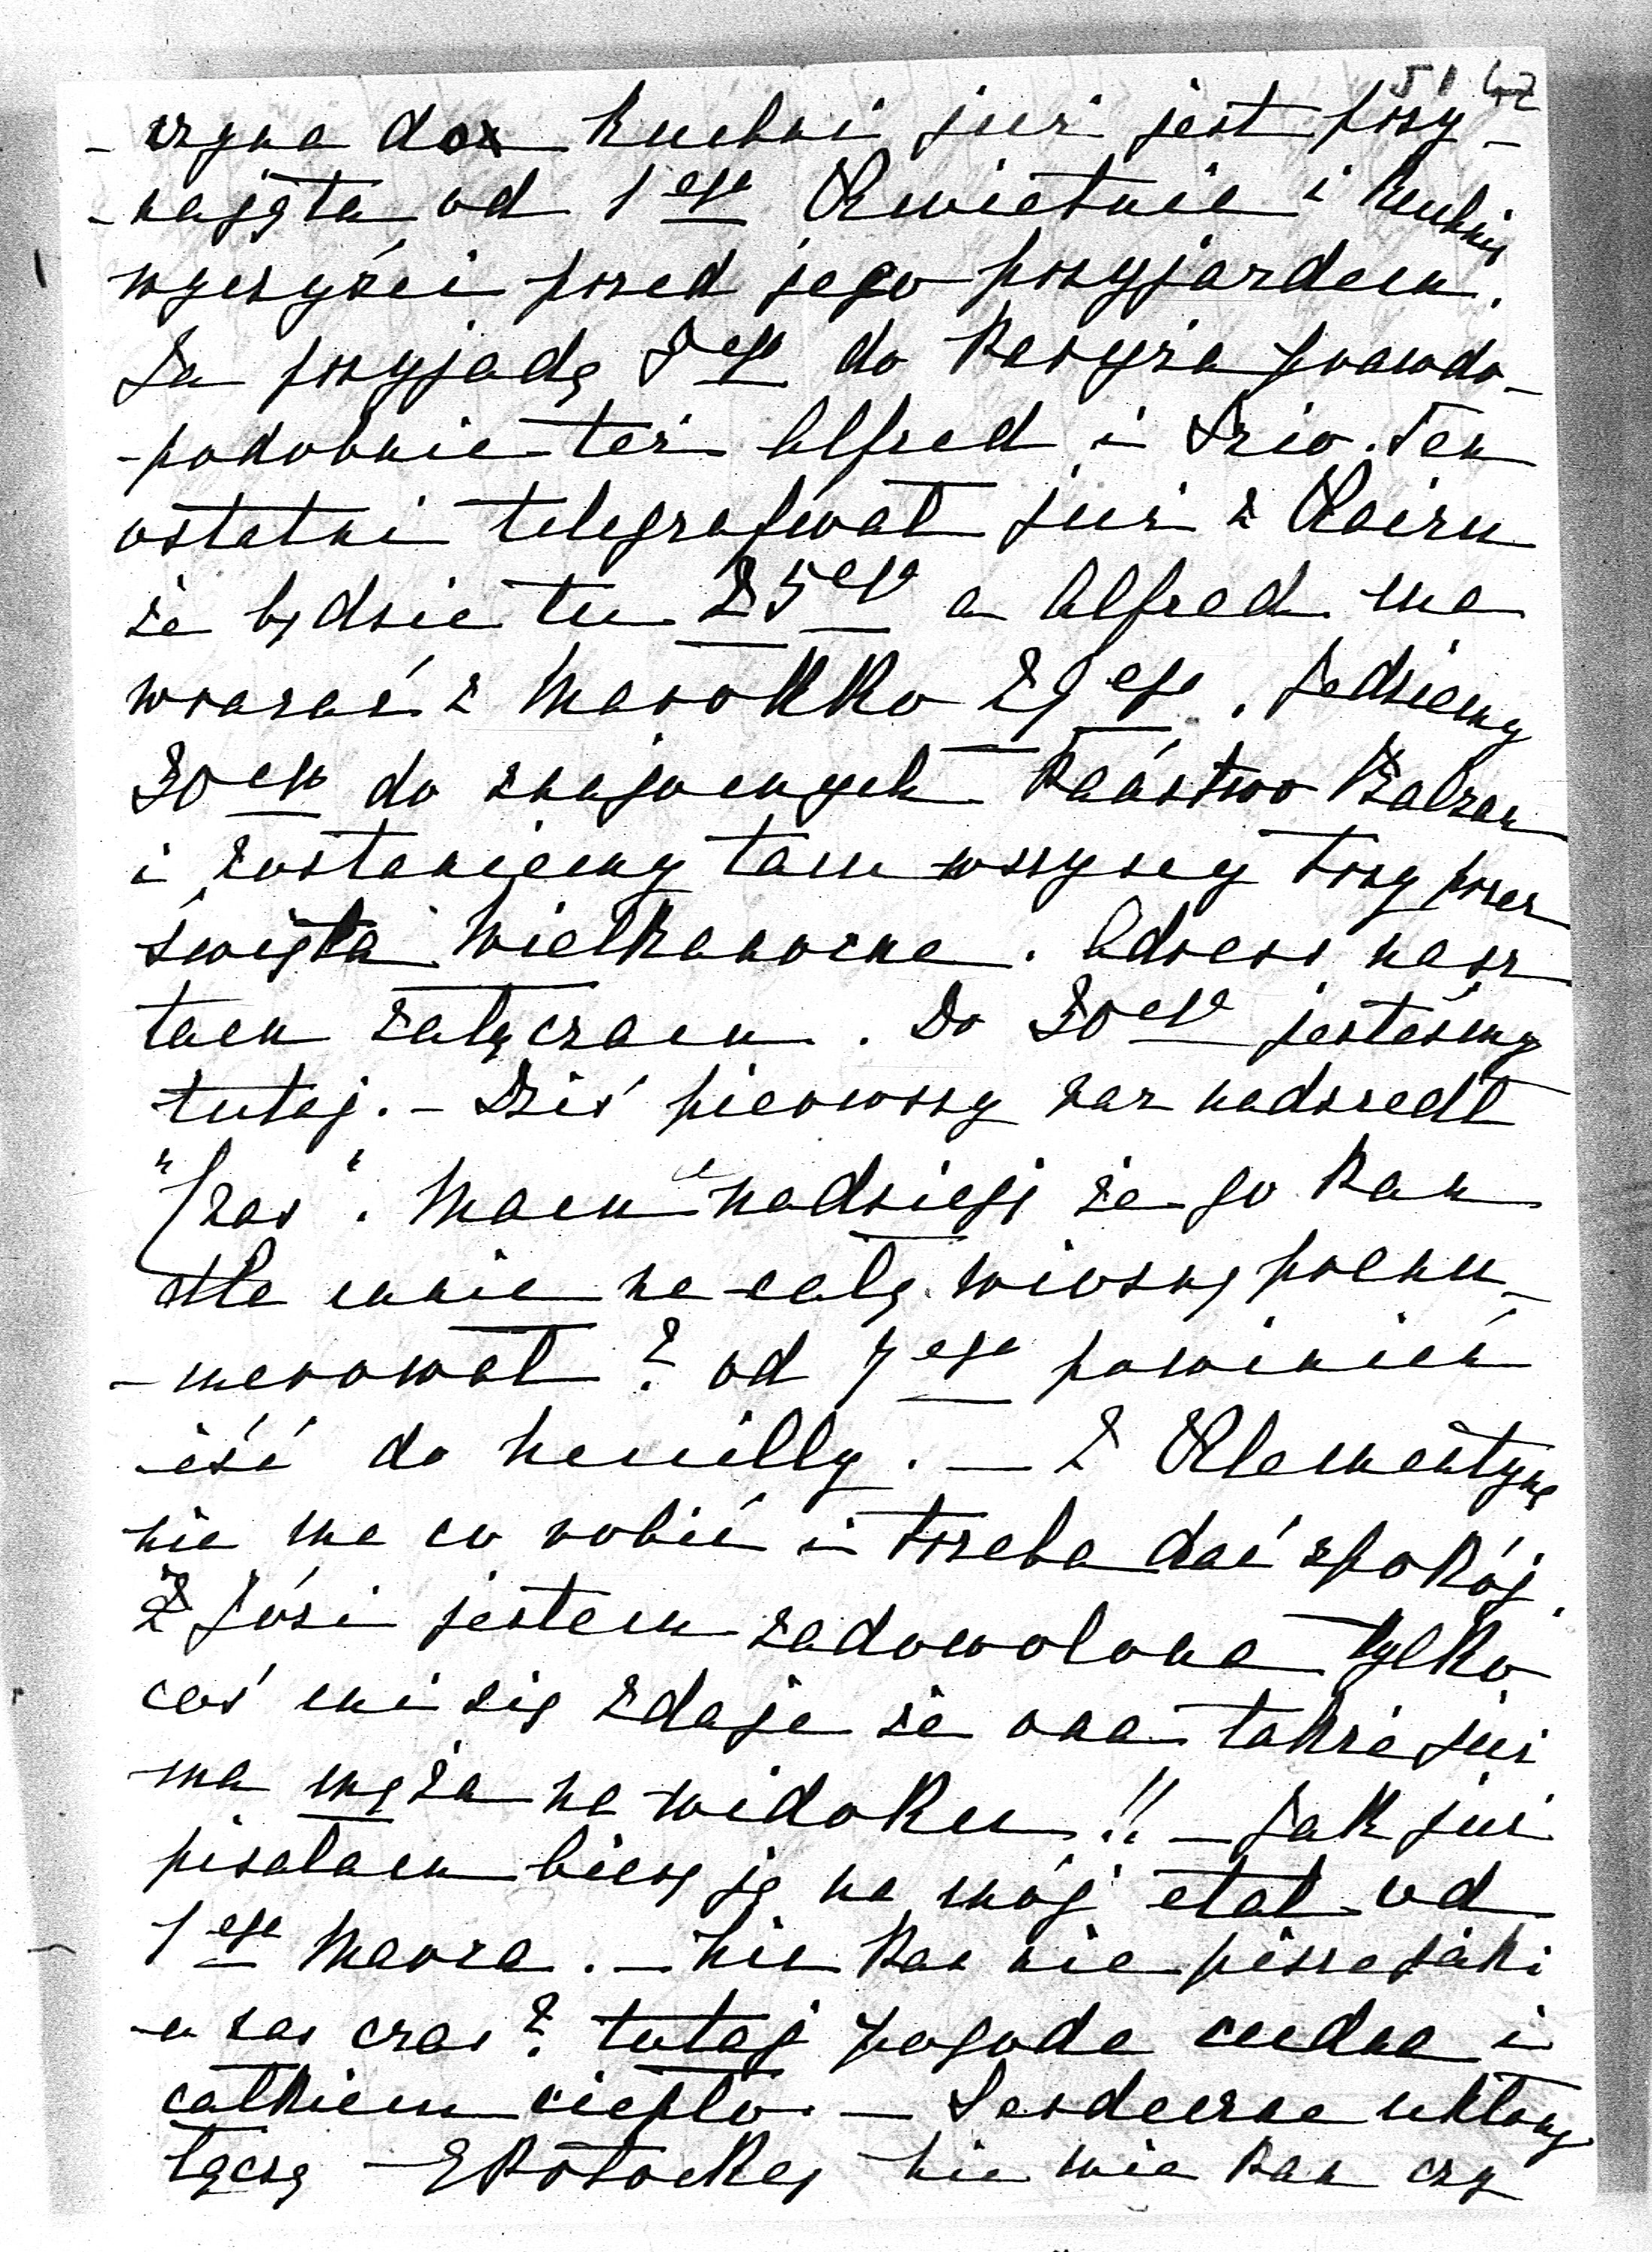 51 42
- czyna do kuchni już jest przy-
- najęta od 1ego Kwietnia i kuchnię
wyczyści przed jego przyjazdem.
Ja przyjadę 3ego do Paryża prawdo-
- podobnie też Alfred i Izio. Ten
ostatni telegrafował już z Kairu
że będzie tu 25ego a Alfred ma
wracać z Marokko 29ego. Jedziemy
30ego do znajomych Państwo Balzan
i zostaniemy tam wszyscy trzy przez
święta Wielkanocne. Adress nasz
tam załączam. Do 30ego jesteśmy
tutaj. - Dziś pierwszy raz nadszedł
"Czas". Mam nadzieję że go Pan
dla mnie na całą wiosnę prenu-
- merował? od 7ego powinien
iść do Neuilly. — Z Klementyną
nie ma co robić i trzeba dać spokój.
Z Józi jestem zadowolona tylko
coś mi się zdaje że ona także już
ma męża na widoku!! — Jak już
pisałam biorę ją na mój etat od
1ego Marca. — Nic Pan nie pisze jaki
u nas czas? tutaj pogoda cudna i
całkiem ciepło. — Serdeczne ukłony
łączę — EPotocka Nie wie Pan czy